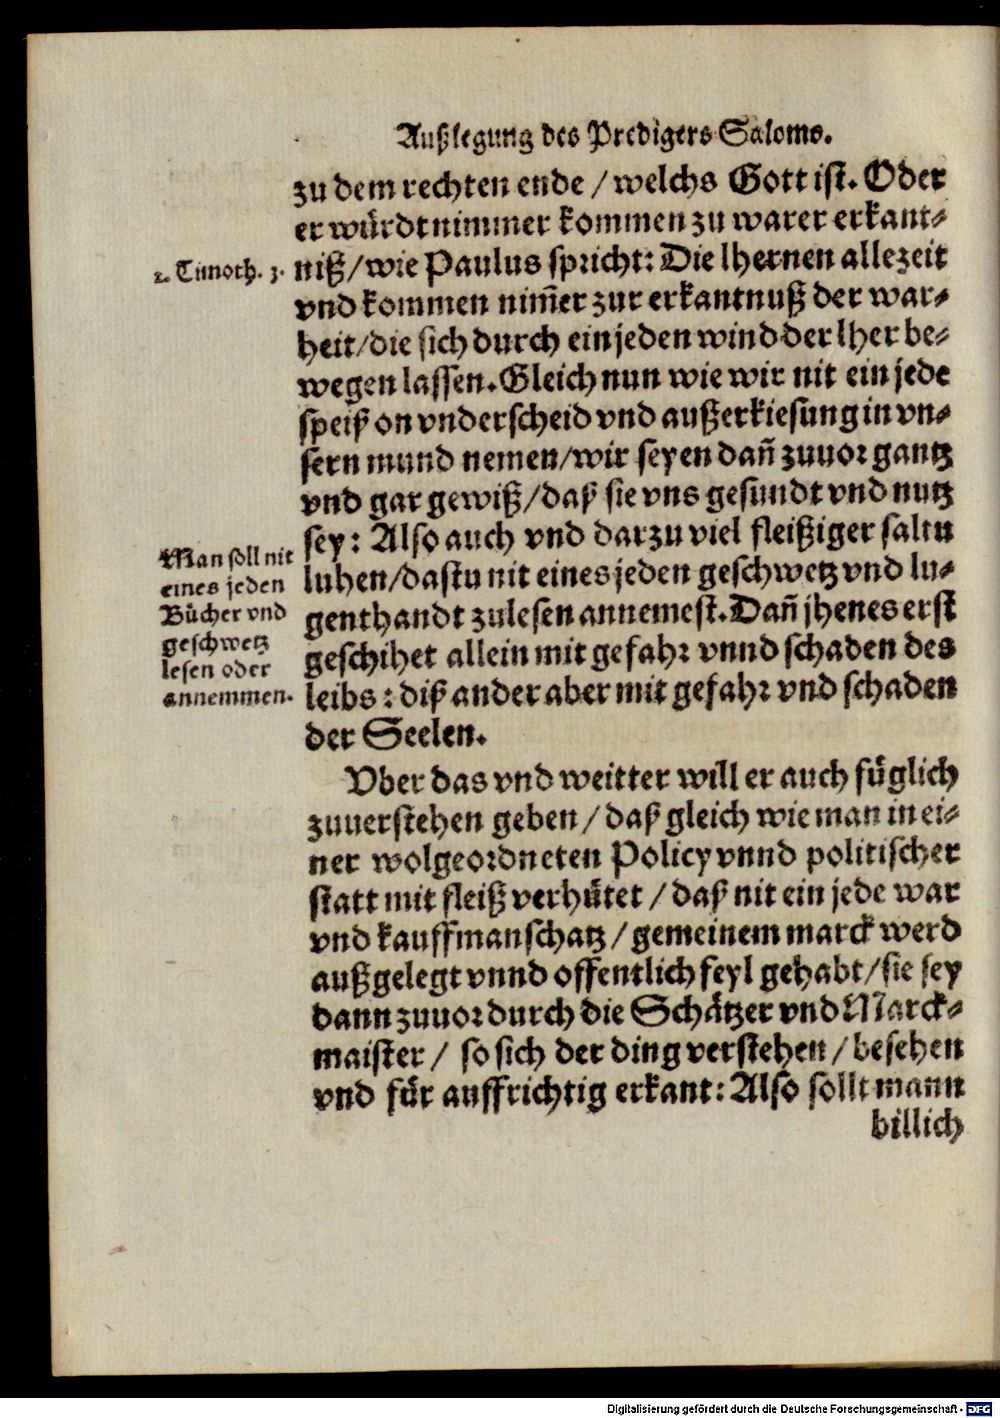 Außlegung des Predigers Saloms.
zu dem rechten ende / welchs Gott ist. Oder
er würdt nimmer kommen zu warer erkant⸗
2. Timoth. 3.
niß / wie Paulus spricht: Die lhernen allezeit
vnd kommen nim̃er zur erkantnuß der war⸗
heit / die sich durch ein jeden wind der lher be⸗
wegen lassen. Gleich nun wie wir nit ein jede
speiß on vnderscheid vnd außerkiesung in vn⸗
sern mund nemen / wir seyen dañ zuuor gantz
vnd gar gewiß / daß sie vns gesundt vnd nutz
sey: Also auch vnd darzu viel fleißiger saltu
Man soll nit
eines jeden
Bücher vnd
geschwetz
lesen oder
annemmen.
luhen / dastu nit eines jeden geschwetz vnd lu⸗
genthandt zulesen annemest. Dañ jhenes erst
geschihet allein mit gefahr vnnd schaden des
leibs: diß ander aber mit gefahr vnd schaden
der Seelen.
Vber das vnd weitter will er auch füglich
zuuerstehen geben / daß gleich wie man in ei⸗
ner wolgeordneten Policy vnnd politischer
statt mit fleiß verhütet / daß nit ein jede war
vnd kauffmanschatz / gemeinem marck werd
außgelegt vnnd offentlich feyl gehabt / sie sey
dann zuuor durch die Schätzer vnd Marck⸗
maister / so sich der ding verstehen / besehen
vnd für auffrichtig erkant: Also sollt mann
billich
Digitalisierung gefördert durch die Deutsche Forschungsgemeinschaft - DFG